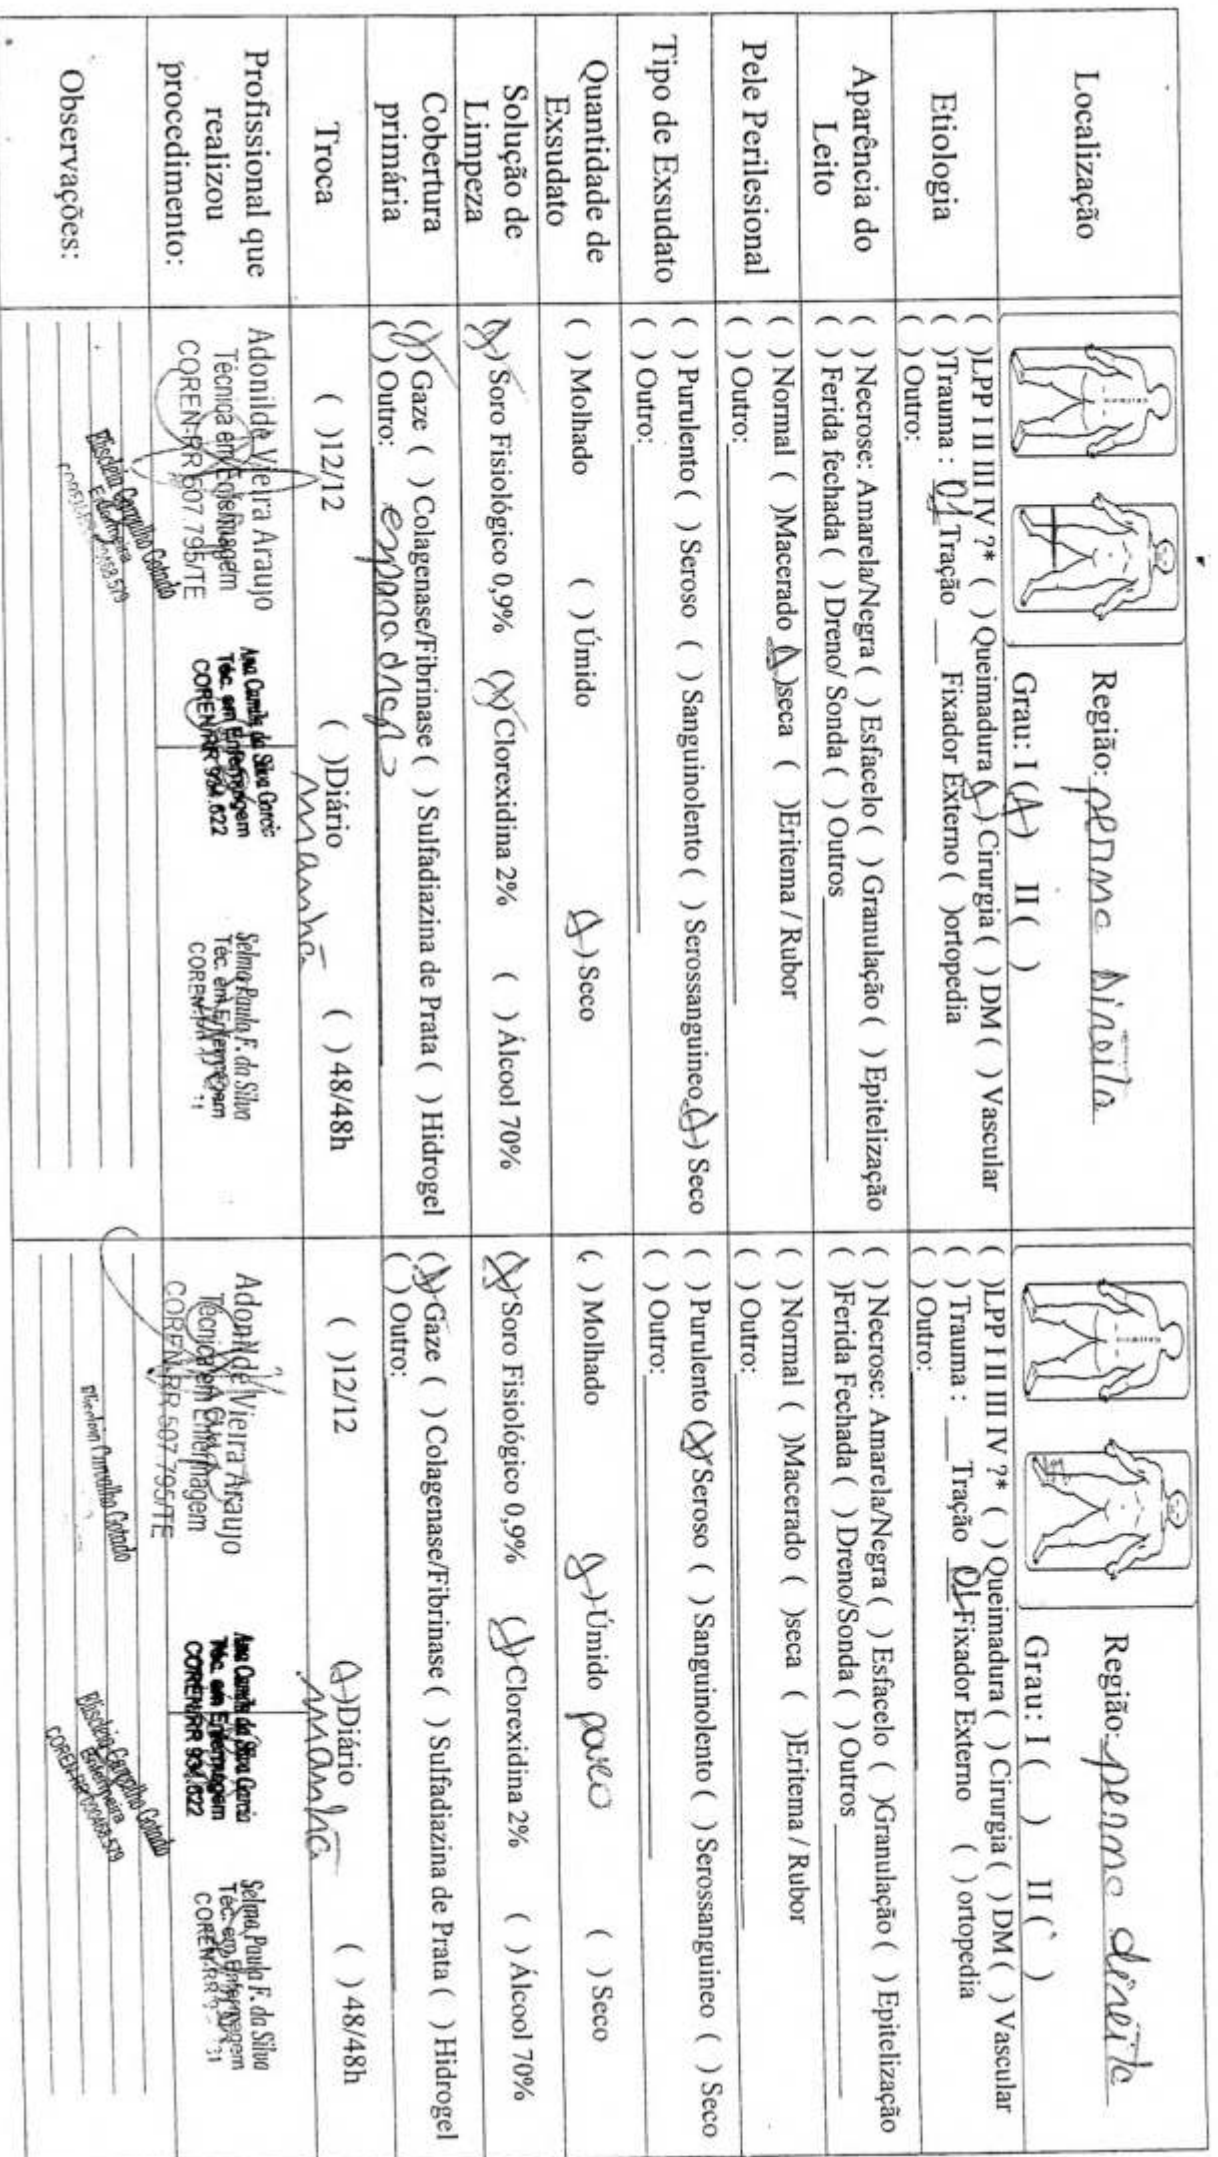 Localização
Região: perna Direita
Grau: I (X) II ( )
Região: perna direita
Grau: I ( ) II ( )
Etiologia
( )LPP I II III IV ?* ( ) Queimadura (X) Cirurgia ( ) DM ( ) Vascular
( )Trauma : 01 Tração ___ Fixador Externo ( )ortopedia
( ) Outro:
( )LPP I II III IV ?* ( ) Queimadura ( ) Cirurgia ( ) DM ( ) Vascular
( ) Trauma : ___ Tração 01 Fixador Externo ( ) ortopedia
( ) Outro:
Aparência do
Leito
( ) Necrose: Amarela/Negra ( ) Esfacelo ( ) Granulação ( ) Epitelização
( ) Ferida fechada ( ) Dreno/ Sonda ( ) Outros
( ) Necrose: Amarela/Negra ( ) Esfacelo ( )Granulação ( ) Epitelização
( )Ferida Fechada ( ) Dreno/Sonda ( ) Outros
Pele Perilesional
( ) Normal ( )Macerado (X)seca ( )Eritema / Rubor
( ) Outro:
( ) Normal ( )Macerado ( )seca ( )Eritema / Rubor
( ) Outro:
Tipo de Exsudato
( ) Purulento ( ) Seroso ( ) Sanguinolento ( ) Serossanguineo (X) Seco
( ) Outro:
( ) Purulento (X) Seroso ( ) Sanguinolento ( ) Serossanguineo ( ) Seco
( ) Outro:
Quantidade de
Exsudato
( ) Molhado ( ) Úmido (X) Seco
( ) Molhado (X) Úmido pouco ( ) Seco
Solução de
Limpeza
(X) Soro Fisiológico 0,9% (X) Clorexidina 2% ( ) Álcool 70%
(X) Soro Fisiológico 0,9% (X) Clorexidina 2% ( ) Álcool 70%
Cobertura
primária
(X) Gaze ( ) Colagenase/Fibrinase ( ) Sulfadiazina de Prata ( ) Hidrogel
( ) Outro:
(X) Gaze ( ) Colagenase/Fibrinase ( ) Sulfadiazina de Prata ( ) Hidrogel
( ) Outro:
Troca
( )12/12 ( )Diário ( ) 48/48h
manhã
( )12/12 (X)Diário ( ) 48/48h
manhã
Profissional que
realizou
procedimento:
Adonilde Vieira Araujo
Técnica em Enfermagem
COREN-RR 507.795/TE
Ana Camila da Silva Garcia
Téc. em Enfermagem
COREN/RR 934.622
Selma Paula F. da Silva
Téc. em Enfermagem
Adonilde Vieira Araujo
Técnica em Enfermagem
COREN-RR 507.795/TE
Ana Camila da Silva Garcia
Téc. em Enfermagem
COREN/RR 934.622
Selma Paula F. da Silva
Téc. em Enfermagem
Observações:
Carvalho
Enfermeira
Carvalho
Carvalho
Enfermeira